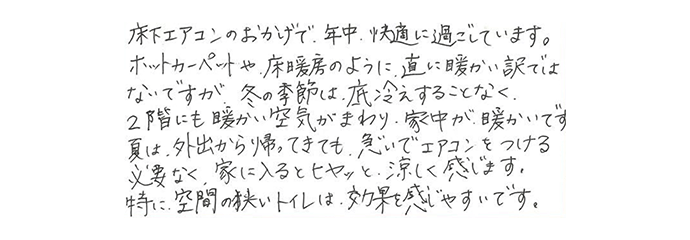 床下エアコンのおかげで、年中、快適に過ごしています。
ホットカーペットや、床暖房のように、直に暖かい訳では
ないですが、冬の季節は、底冷えすることなく、
2階にも暖かい空気がまわり、家中が、暖かいです
夏は、外出から帰ってきても、急いでエアコンをつける
必要なく、家に入るとヒヤッと、涼しく感じます。
特に、空間の狭いトイレは、効果を感じやすいです。